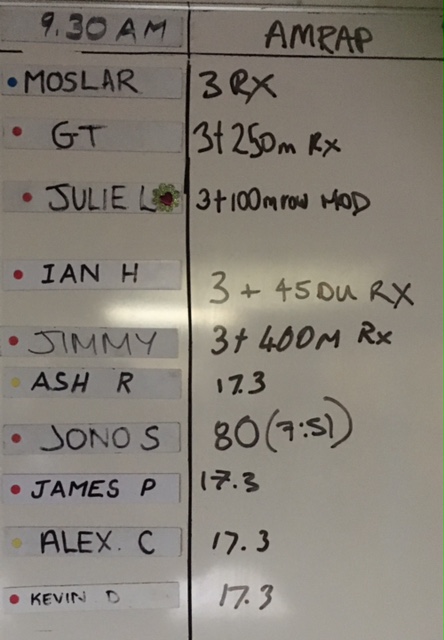 9.30 AM AMRAP
MOSLAR 3 RX
GT 3+250m Rx
JULIE L 3+100m row MOD
IAN H 3 + 45DU RX
JIMMY 3+ 400M Rx
ASH R 17.3
JONO S 80 (7:51)
JAMES P 17.3
ALEX. C 17.3
KEVIN D 17.3